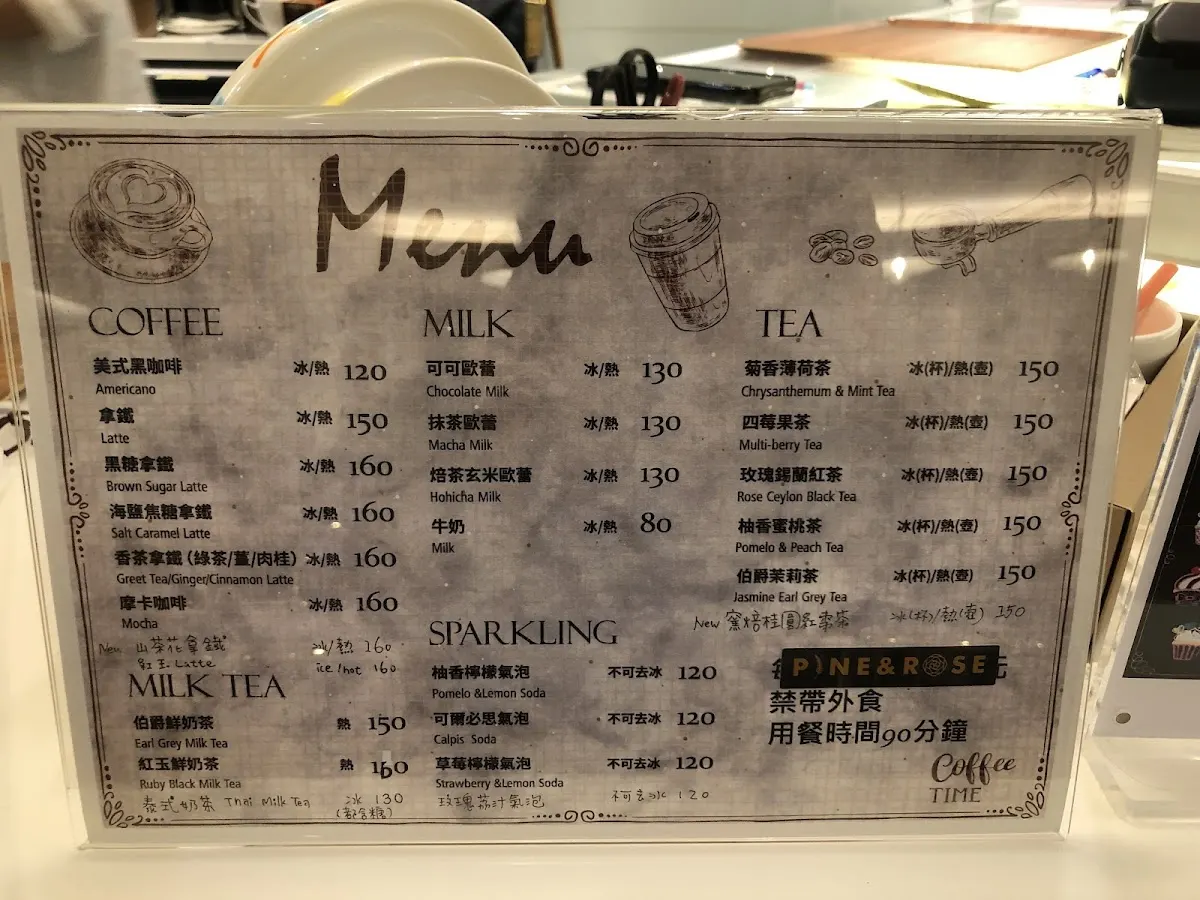 Menu
COFFEE
美式黑咖啡 冰/熱 120
Americano
拿鐵 冰/熱 150
Latte
黑糖拿鐵 冰/熱 160
Brown Sugar Latte
海鹽焦糖拿鐵 冰/熱 160
Salt Caramel Latte
香茶拿鐵(綠茶/薑/肉桂) 冰/熱 160
Greet Tea/Ginger/Cinnamon Latte
摩卡咖啡 冰/熱 160
Mocha
New 山茶花拿鐵 冰/熱 160
紅玉Latte ice/hot 160
MILK TEA
伯爵鮮奶茶 熱 150
Earl Grey Milk Tea
紅玉鮮奶茶 熱 160
Ruby Black Milk Tea
泰式奶茶 Thai Milk Tea 冰 130
(都含糖)
MILK
可可歐蕾 冰/熱 130
Chocolate Milk
抹茶歐蕾 冰/熱 130
Macha Milk
焙茶玄米歐蕾 冰/熱 130
Hohicha Milk
牛奶 冰/熱 80
Milk
SPARKLING
柚香檸檬氣泡 不可去冰 120
Pomelo &Lemon Soda
可爾必思氣泡 不可去冰 120
Calpis Soda
草莓檸檬氣泡 不可去冰 120
Strawberry &Lemon Soda
玫瑰荔汁氣泡 不可去冰 120
TEA
菊香薄荷茶 冰(杯)/熱(壺) 150
Chrysanthemum & Mint Tea
四莓果茶 冰(杯)/熱(壺) 150
Multi-berry Tea
玫瑰錫蘭紅茶 冰(杯)/熱(壺) 150
Rose Ceylon Black Tea
柚香蜜桃茶 冰(杯)/熱(壺) 150
Pomelo & Peach Tea
伯爵茉莉茶 冰(杯)/熱(壺) 150
Jasmine Earl Grey Tea
New 窯焙桂圓紅棗茶 冰(杯)/熱(壺) 150
PINE&ROSE
禁帶外食
用餐時間90分鐘
Coffee
TIME